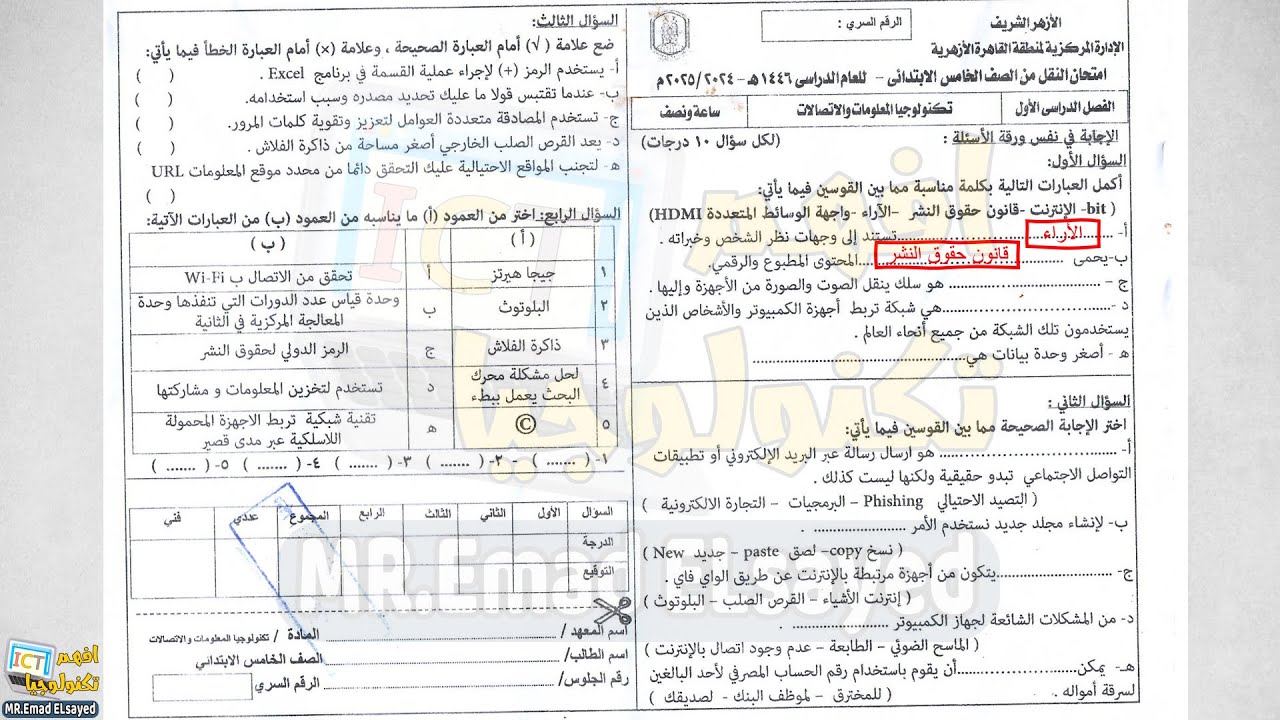 الأزهر الشريف
الإدارة المركزية لمنطقة القاهرة الأزهرية
الرقم السري :
امتحان النقل من الصف الخامس الابتدائى – للعام الدراسى ١٤٤٦هـ - ٢٠٢٤ / ٢٠٢٥ م
الفصل الدراسى الأول
تكنولوجيا المعلومات والاتصالات
ساعة ونصف
الإجابة في نفس ورقة الأسئلة :
(لكل سؤال ١٠ درجات)
السؤال الأول:
أكمل العبارات التالية بكلمة مناسبة مما بين القوسين فيما يأتي:
( bit- الإنترنت -قانون حقوق النشر -الآراء -واجهة الوسائط المتعددة HDMI)
أ- ....... الأراء .......تستند إلى وجهات نظر الشخص وخبراته .
ب-يحمى ........ قانون حقوق النشر ........المحتوى المطبوع والرقمي.
ج – ................................ هو سلك ينقل الصوت والصورة من الأجهزة وإليها .
د -................................هي شبكة تربط أجهزة الكمبيوتر والأشخاص الذين
يستخدمون تلك الشبكة من جميع أنحاء العالم .
ه - أصغر وحدة بيانات هي................................
السؤال الثاني :
اختر الإجابة الصحيحة مما بين القوسين فيما يأتي:
أ- ................................ هو ارسال رسالة عبر البريد الإلكتروني أو تطبيقات
التواصل الاجتماعي تبدو حقيقية ولكنها ليست كذلك .
( التصيد الاحتيالي Phishing – البرمجيات – التجارة الالكترونية )
ب- لإنشاء مجلد جديد نستخدم الأمر ..................... .
( نسخ copy– لصق paste – جديد New )
ج- ..............................يتكون من أجهزة مرتبطة بالإنترنت عن طريق الواي فاي .
( إنترنت الأشياء – القرص الصلب – البلوتوث )
د- من المشكلات الشائعة لجهاز الكمبيوتر ..................... .
( الماسح الضوئي – الطابعة – عدم وجود اتصال بالإنترنت )
هـ- يمكن.....................أن يقوم باستخدام رقم الحساب المصرفي لأحد البالغين
لسرقة أمواله .
( للمخترق – لموظف البنك - لصديقك )
السؤال الثالث:
ضع علامة (√) أمام العبارة الصحيحة ، وعلامة (x) أمام العبارة الخطأ فيما يأتي:
أ- يستخدم الرمز (+) لإجراء عملية القسمة في برنامج Excel . ( )
ب- عندما تقتبس قولا ما عليك تحديد مصدره وسبب استخدامه. ( )
ج- تستخدم المصادقة متعددة العوامل لتعزيز وتقوية كلمات المرور. ( )
د- يعد القرص الصلب الخارجي أصغر مساحة من ذاكرة الفلاش. ( )
ه- لتجنب المواقع الاحتيالية عليك التحقق دائما من محدد موقع المعلومات URL
( )
السؤال الرابع: اختر من العمود (أ) ما يناسبه من العمود (ب) من العبارات الآتية:
( أ )
( ب )
١ جيجا هيرتز
أ تحقق من الاتصال ب Wi-Fi
٢ البلوتوث
ب وحدة قياس عدد الدورات التي تنفذها وحدة
المعالجة المركزية في الثانية
٣ ذاكرة الفلاش
ج الرمز الدولي لحقوق النشر
٤ لحل مشكلة محرك
البحث يعمل ببطء
د تستخدم لتخزين المعلومات و مشاركتها
٥ ©
ه تقنية شبكية تربط الاجهزة المحمولة
اللاسلكية عبر مدى قصير
١- ( ....... ) - ٢- ( ....... ) ٣- ( ....... ) ٤- ( ....... ) ٥- ( ....... )
السؤال الأول الثاني الثالث الرابع المجموع عددي فني
الدرجة
التوقيع
اسم المعهد/ ................................ المادة / تكنولوجيا المعلومات والاتصالات
اسم الطالب/ ................................ الصف الخامس الابتدائي
رقم الجلوس/ ................................ الرقم السري
افهم
ICT
تكنولوجيا
MR.Emad ELsayed
افهم
ICT
تكنولوجيا
MR.Emad ELsayed